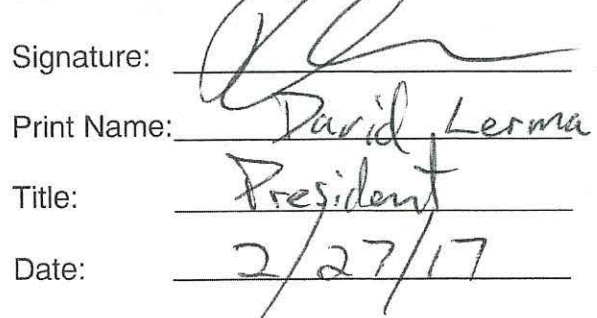 Signature:
Print Name: David Lerma
Title: President
Date: 2/27/17